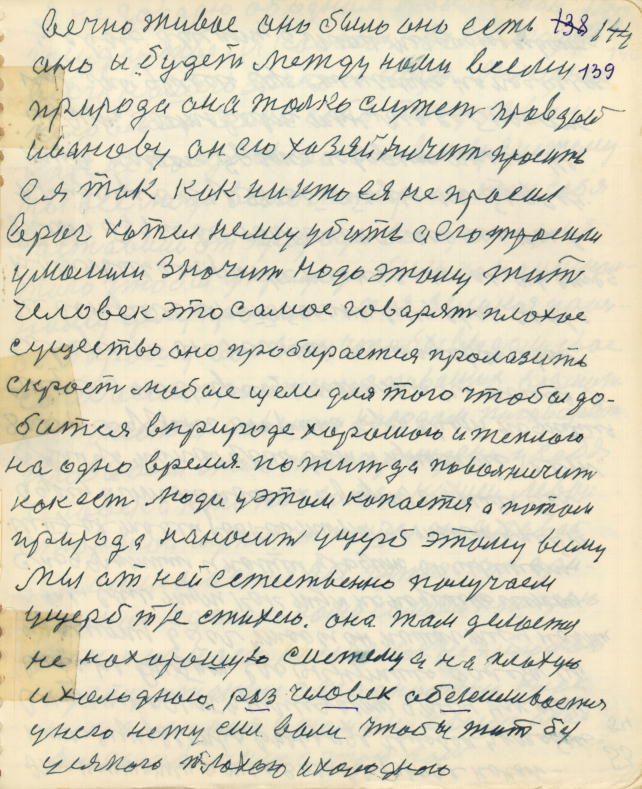 вечно живое оно было оно есть 138 144
оно и будет между нами всеми 139
природа она толко служет правдой
иванову он ею хазяйничит просить
ся так как никто ея не просил
враг хотел нему убить а его просили
умолили значит надо этому жит
человек это самое говарят плохое
существо оно пробирается пролазить
скрост любые щели для того чтобы до-
битея в природе хорошою и теплою
на одно время пожит да
как ест люди у этом копается а потом
природа наносит ущерб этому всему
мы от ней естественно получаем
ущерб т/е стихею. она там делается
не на хорошую систему а на плохую
и холодною. раз человек обесиливается
у него нету сил воли чтобы жит бу
плохою и холодною